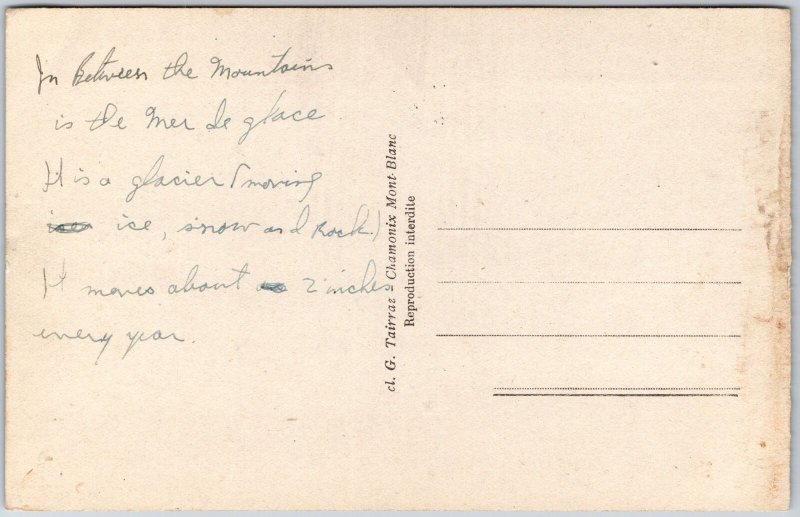 In Between the Mountains
is the Mer de glace
It is a glacier (moving
ice, snow and Rock.)
It moves about 2 inches
every year.
cl. G. Tairraz - Chamonix Mont-Blanc
Reproduction interdite